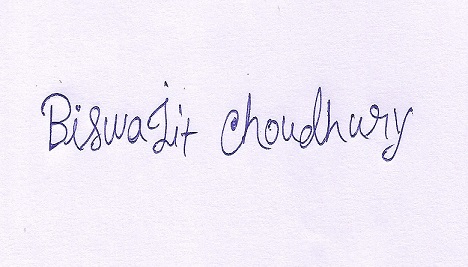 Biswajit Choudhury